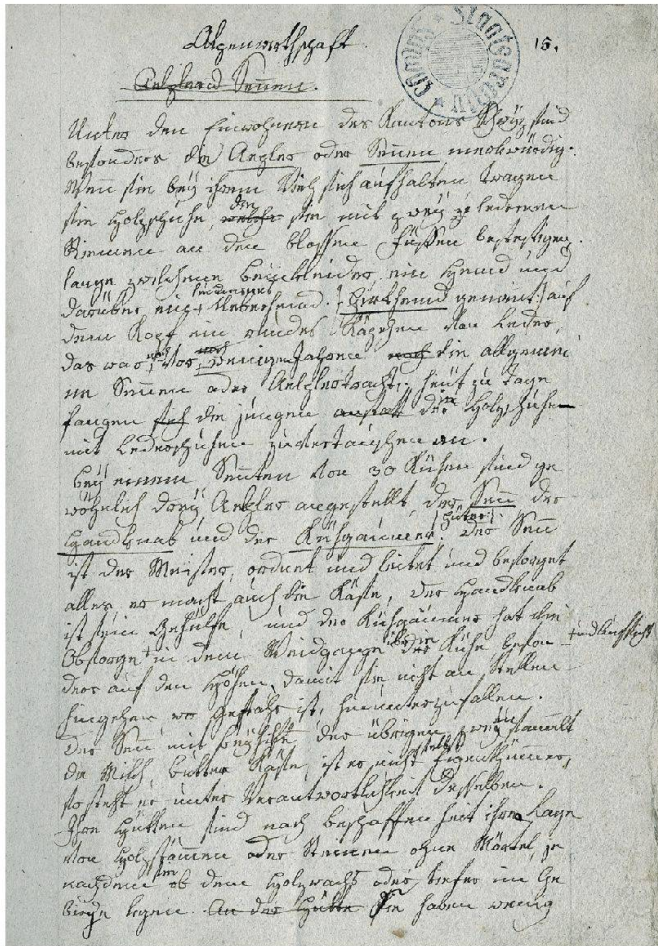 Alpenwirthschaft
15.
Staatsarchiv Schwyz
Aelpler und Sennen.
Unter den Einwohnern des Kantons Schwÿz sind
besonders die Aelpler oder Sennen merkwürdig.
Wenn sie beÿ ihrem Vieh sich aufhalten, tragen
sie Holzschuhe, welche den sie mit zweÿ ledernen
Riemen an den blossen Füssen befestigen,
lange zwilchene Beinkleider, ein Hemd und
darüber ein Ueberhemd. Hirthemd genannt: auf
dem Kopf ein rundes Käpchen von Leder,
das war noch vor wenigen Jahren noch die allgemei
ne Sennen oder Aelplertracht; heut zu Tage
fangen sich die jungen anstatt die Holzschuhe
mit Lederschuhen zu vertauschen an.
Beÿ einem Senten von 30 Kühen sind ge
wöhnlich dreÿ Aelpler angestellt, der Senn der
Handknab und der Kühgaumer (Hüter). Der Senn
ist der Meister, ordnet und leitet und besorget
alles, er macht auch die Käse, der Handknab
ist sein Gehülfe, und der Kühgaumer hat die
Obsorge in dem Weidgange über die Kühe beson-
und Aufsicht
ders auf den Höhen, damit sie nicht an Stellen
hingehen wo Gefahr ist, hinunterzufallen.
Der Senn mit beÿhilfe der übrigen zweÿ sammelt
die Milch, butter Käse, ist er nicht selbst Eigenthümer,
so steht er unter Verantwortlichkeit desselben.
Ihre Hütten sind nach beschaffenheit ihrer Lage
von Holzstämen oder Steinen ohne Mörtel, je
nachdem sie ob dem Holzwachs oder tiefer im Ge
birge liegen. An der Hütte Sie haben wenig